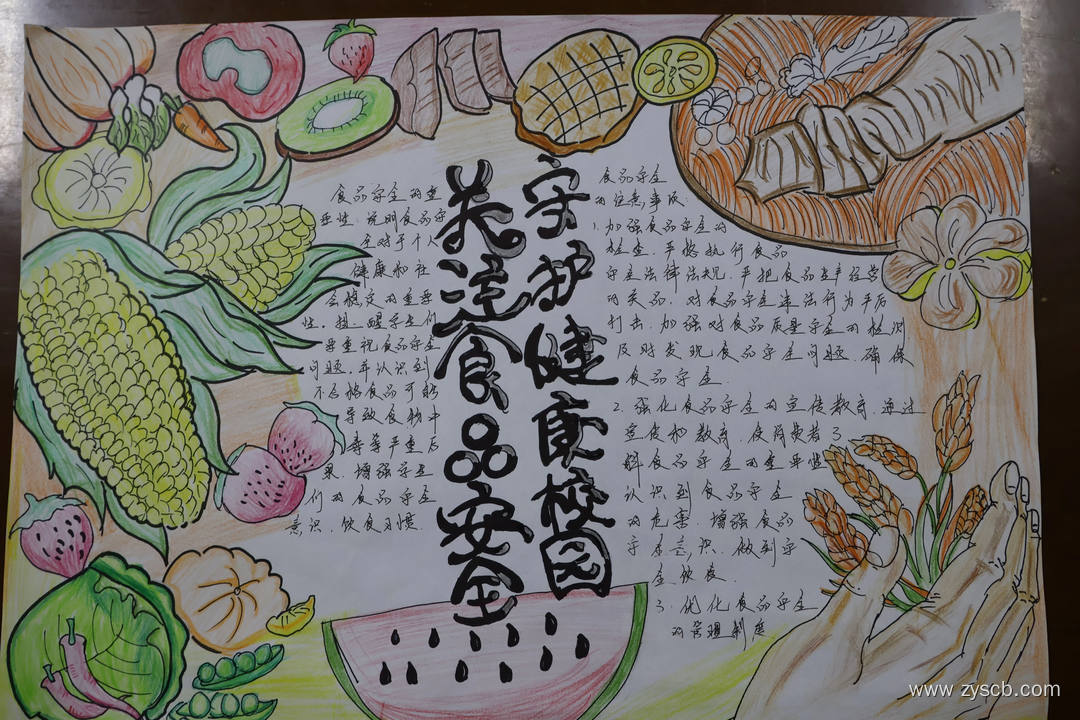 关注食品安全
守护健康校园
食品安全的重
要性：说明食品安
全对于个人
健康和社
会稳定的重要
性。提醒学生们
要重视食品安全
问题，并认识到
不合格食品可能
导致食物中
毒等严重后
果，增强学生
们的食品安全
意识，饮食习惯.
食品安全
的注意事项
1.加强食品安全的
检查.严格执行食品
安全法律法规.严把食品生产经营
的关品.对食品安全违法行为严厉
打击.加强对食品质量安全的检测
及时发现食品安全问题.确保
食品安全.
2.强化食品安全的宣传教育.通过
宣传和教育.使消费者了
解食品安全的重要性
认识到食品安全
的危害.增强食品
安全意识.做到安
全饮食.
3.优化食品安全
的管理制度
www.zyscb.com